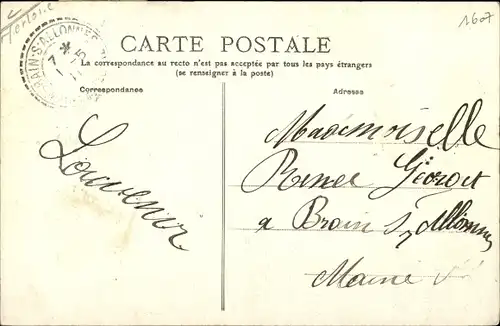 1607
CARTE POSTALE
La correspondance au recto n'est pas acceptée par tous les pays étrangers
(se renseigner à la poste)
Correspondance
Adresse
Souvenir
Mademoiselle
Renée
a Brain s/ Allonnes
Maine